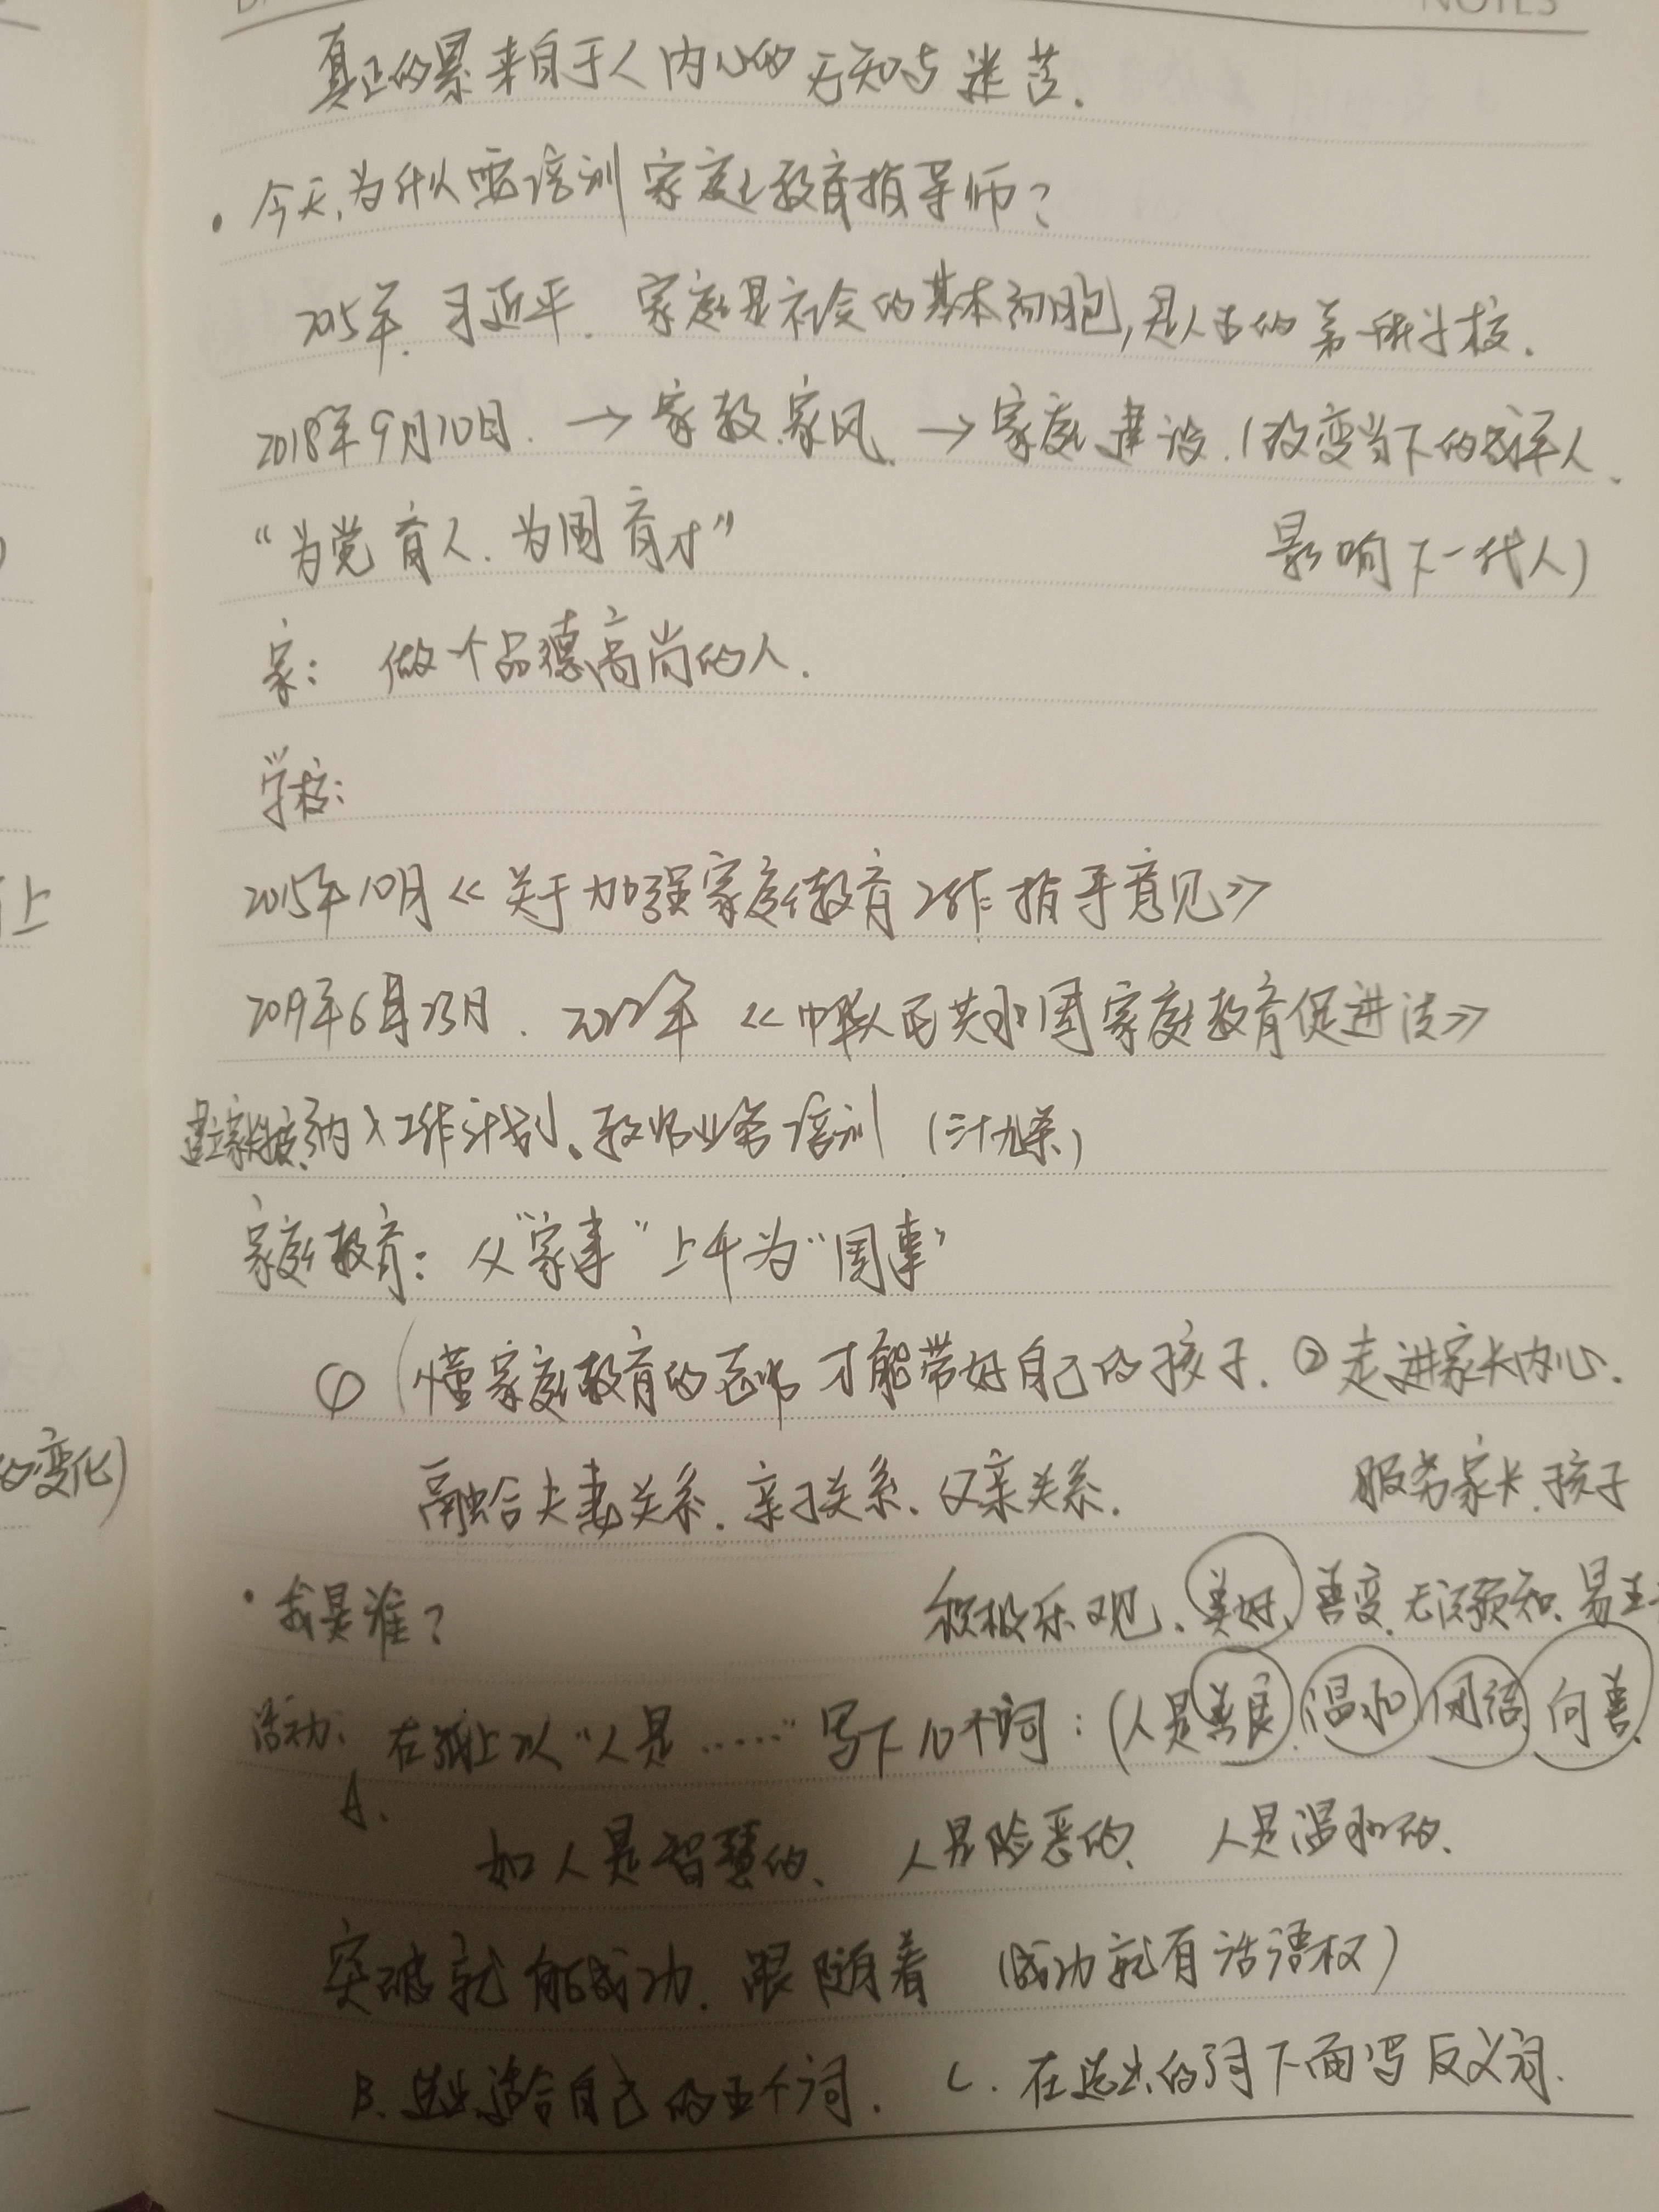 NOTES
真正的累来自于人内心的无知与迷茫.
·今天,为什么要培训家庭教育指导师?
2015年.习近平.家庭是社会的基本细胞,是人生的第一所学校.
2018年9月10日.→家教.家风.→家庭建设.(改变当下的成年人.
“为党育人.为国育才” 影响下一代人)
家: 做一个品德高尚的人.
学校:
2015年10月《关于加强家庭教育工作指导意见》
2019年6月23日. 2022年《中华人民共和国家庭教育促进法》
建立家长学校,纳入工作计划、教师业务培训 (三十九条)
家庭教育: 从“家事”上升为“国事”
① (懂家庭教育的老师才能带好自己的孩子. ②走进家长内心.
融合夫妻关系.亲子关系.父亲关系. 服务家长.孩子
的变化)
·我是谁? 积极乐观、美好、善变.无法预知.易
活动: 在纸上以“人是……”写下10个词:(人是善良.温和.团结.向善.
A.
如人是智慧的、人是险恶的、人是温和的.
突破就能成功. 跟随着 (成功就有话语权)
B.选出适合自己的五个词. C.在选出的词下面写反义词.
上